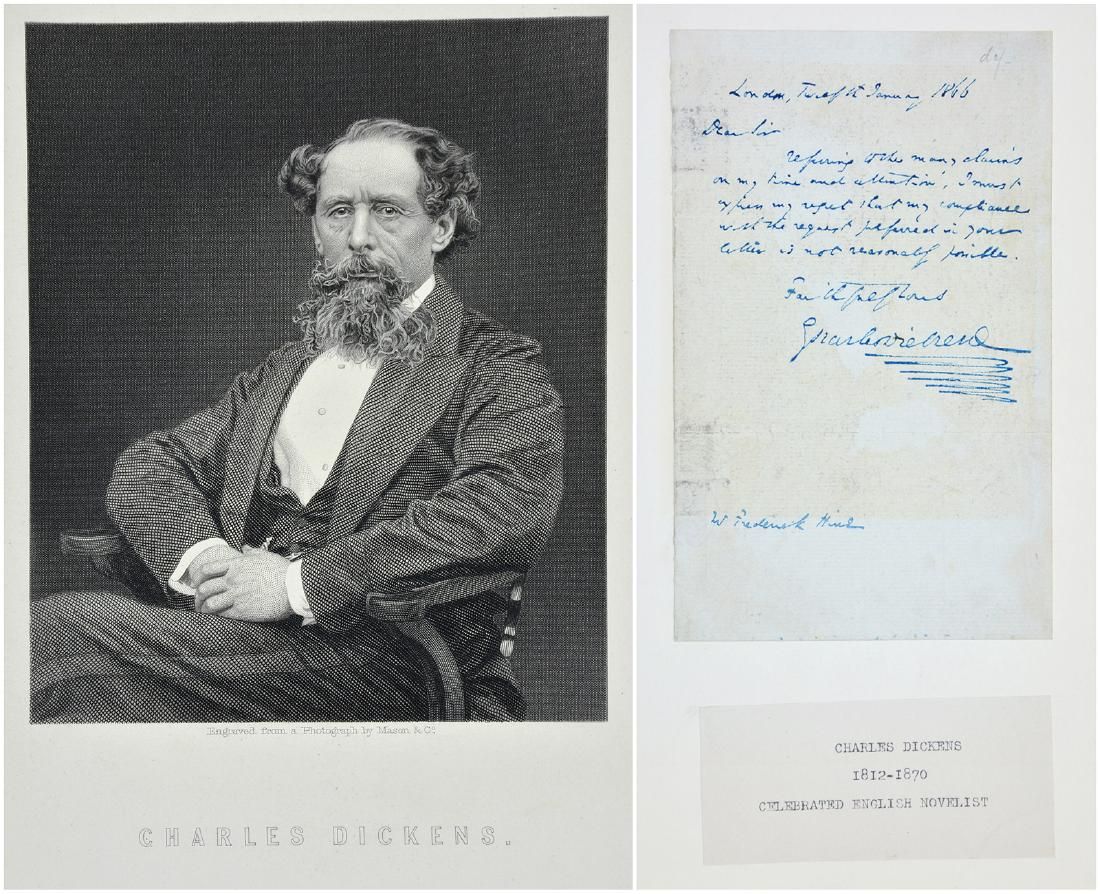 Engraved from a Photograph by Mason & Co.
CHARLES DICKENS.
London, Twelfth January 1866
Dear Sir
referring to the many claims
on my time and attention, I must
express my regret that my compliance
with the request preferred in your
letter is not reasonably possible.
Faithfully yours
Charles Dickens
W Frederick
CHARLES DICKENS
1812-1870
CELEBRATED ENGLISH NOVELIST